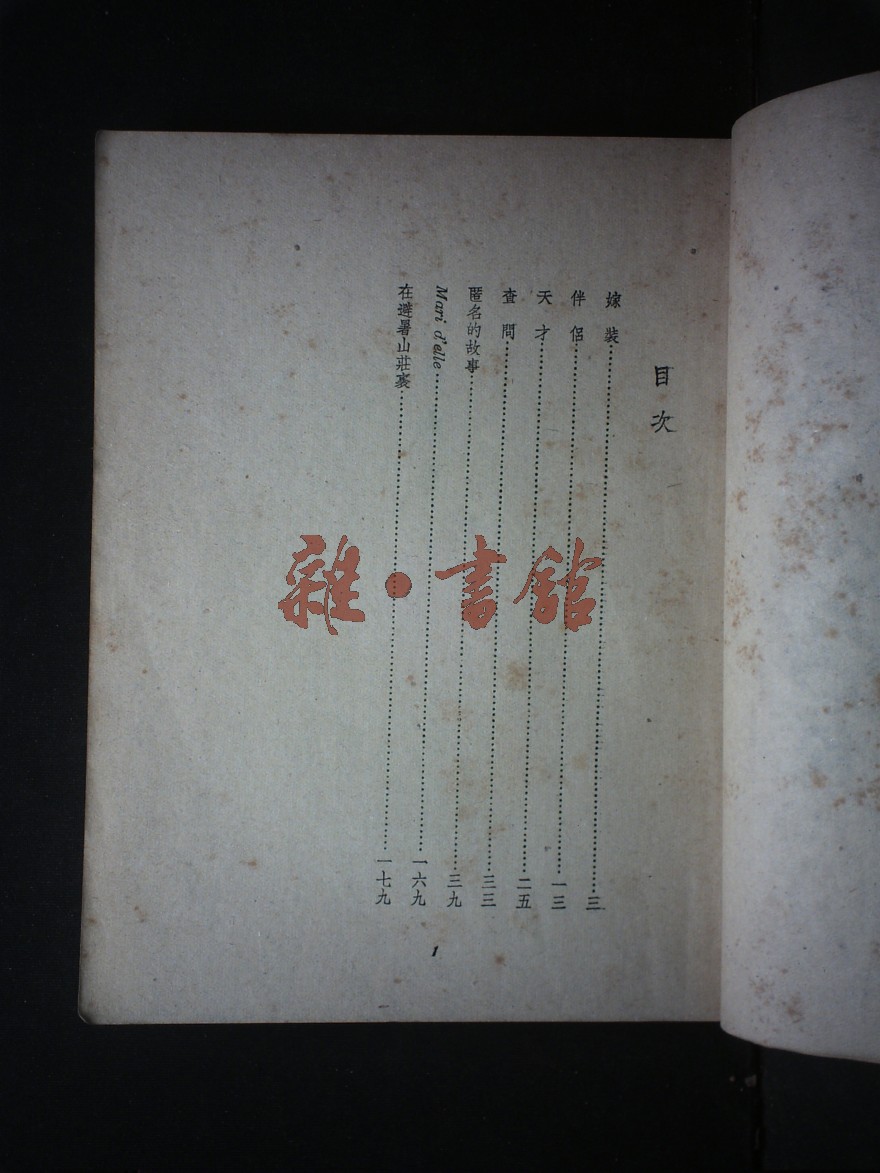 目次
嫁裝……三
伴侶……一三
天才……二五
查問……三三
匿名的故事……三九
Mari d'elle……一六九
在避暑山莊裏……一七九
1
雜·書館